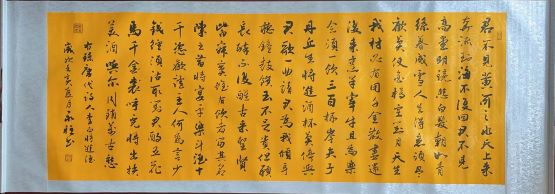 君不見黃河之水天上來
奔流到海不復回君不見
高堂明鏡悲白髮朝如青
絲暮成雪人生得意須盡
歡莫使金樽空對月天生
我材必有用千金散盡還
復來烹羊宰牛且為樂
會須一飲三百杯岑夫子
丹丘生將進酒杯莫停與
君歌一曲請君為我傾耳
聽鐘鼓饌玉不足貴但願
長醉不復醒古來聖賢
皆寂寞惟有飲者留其名
陳王昔時宴平樂斗酒十
千恣歡謔主人何為言少
錢徑須沽取對君酌五花
馬千金裘呼兒將出換
美酒與爾同銷萬古愁
右錄唐代詩人李白將進酒
歲次